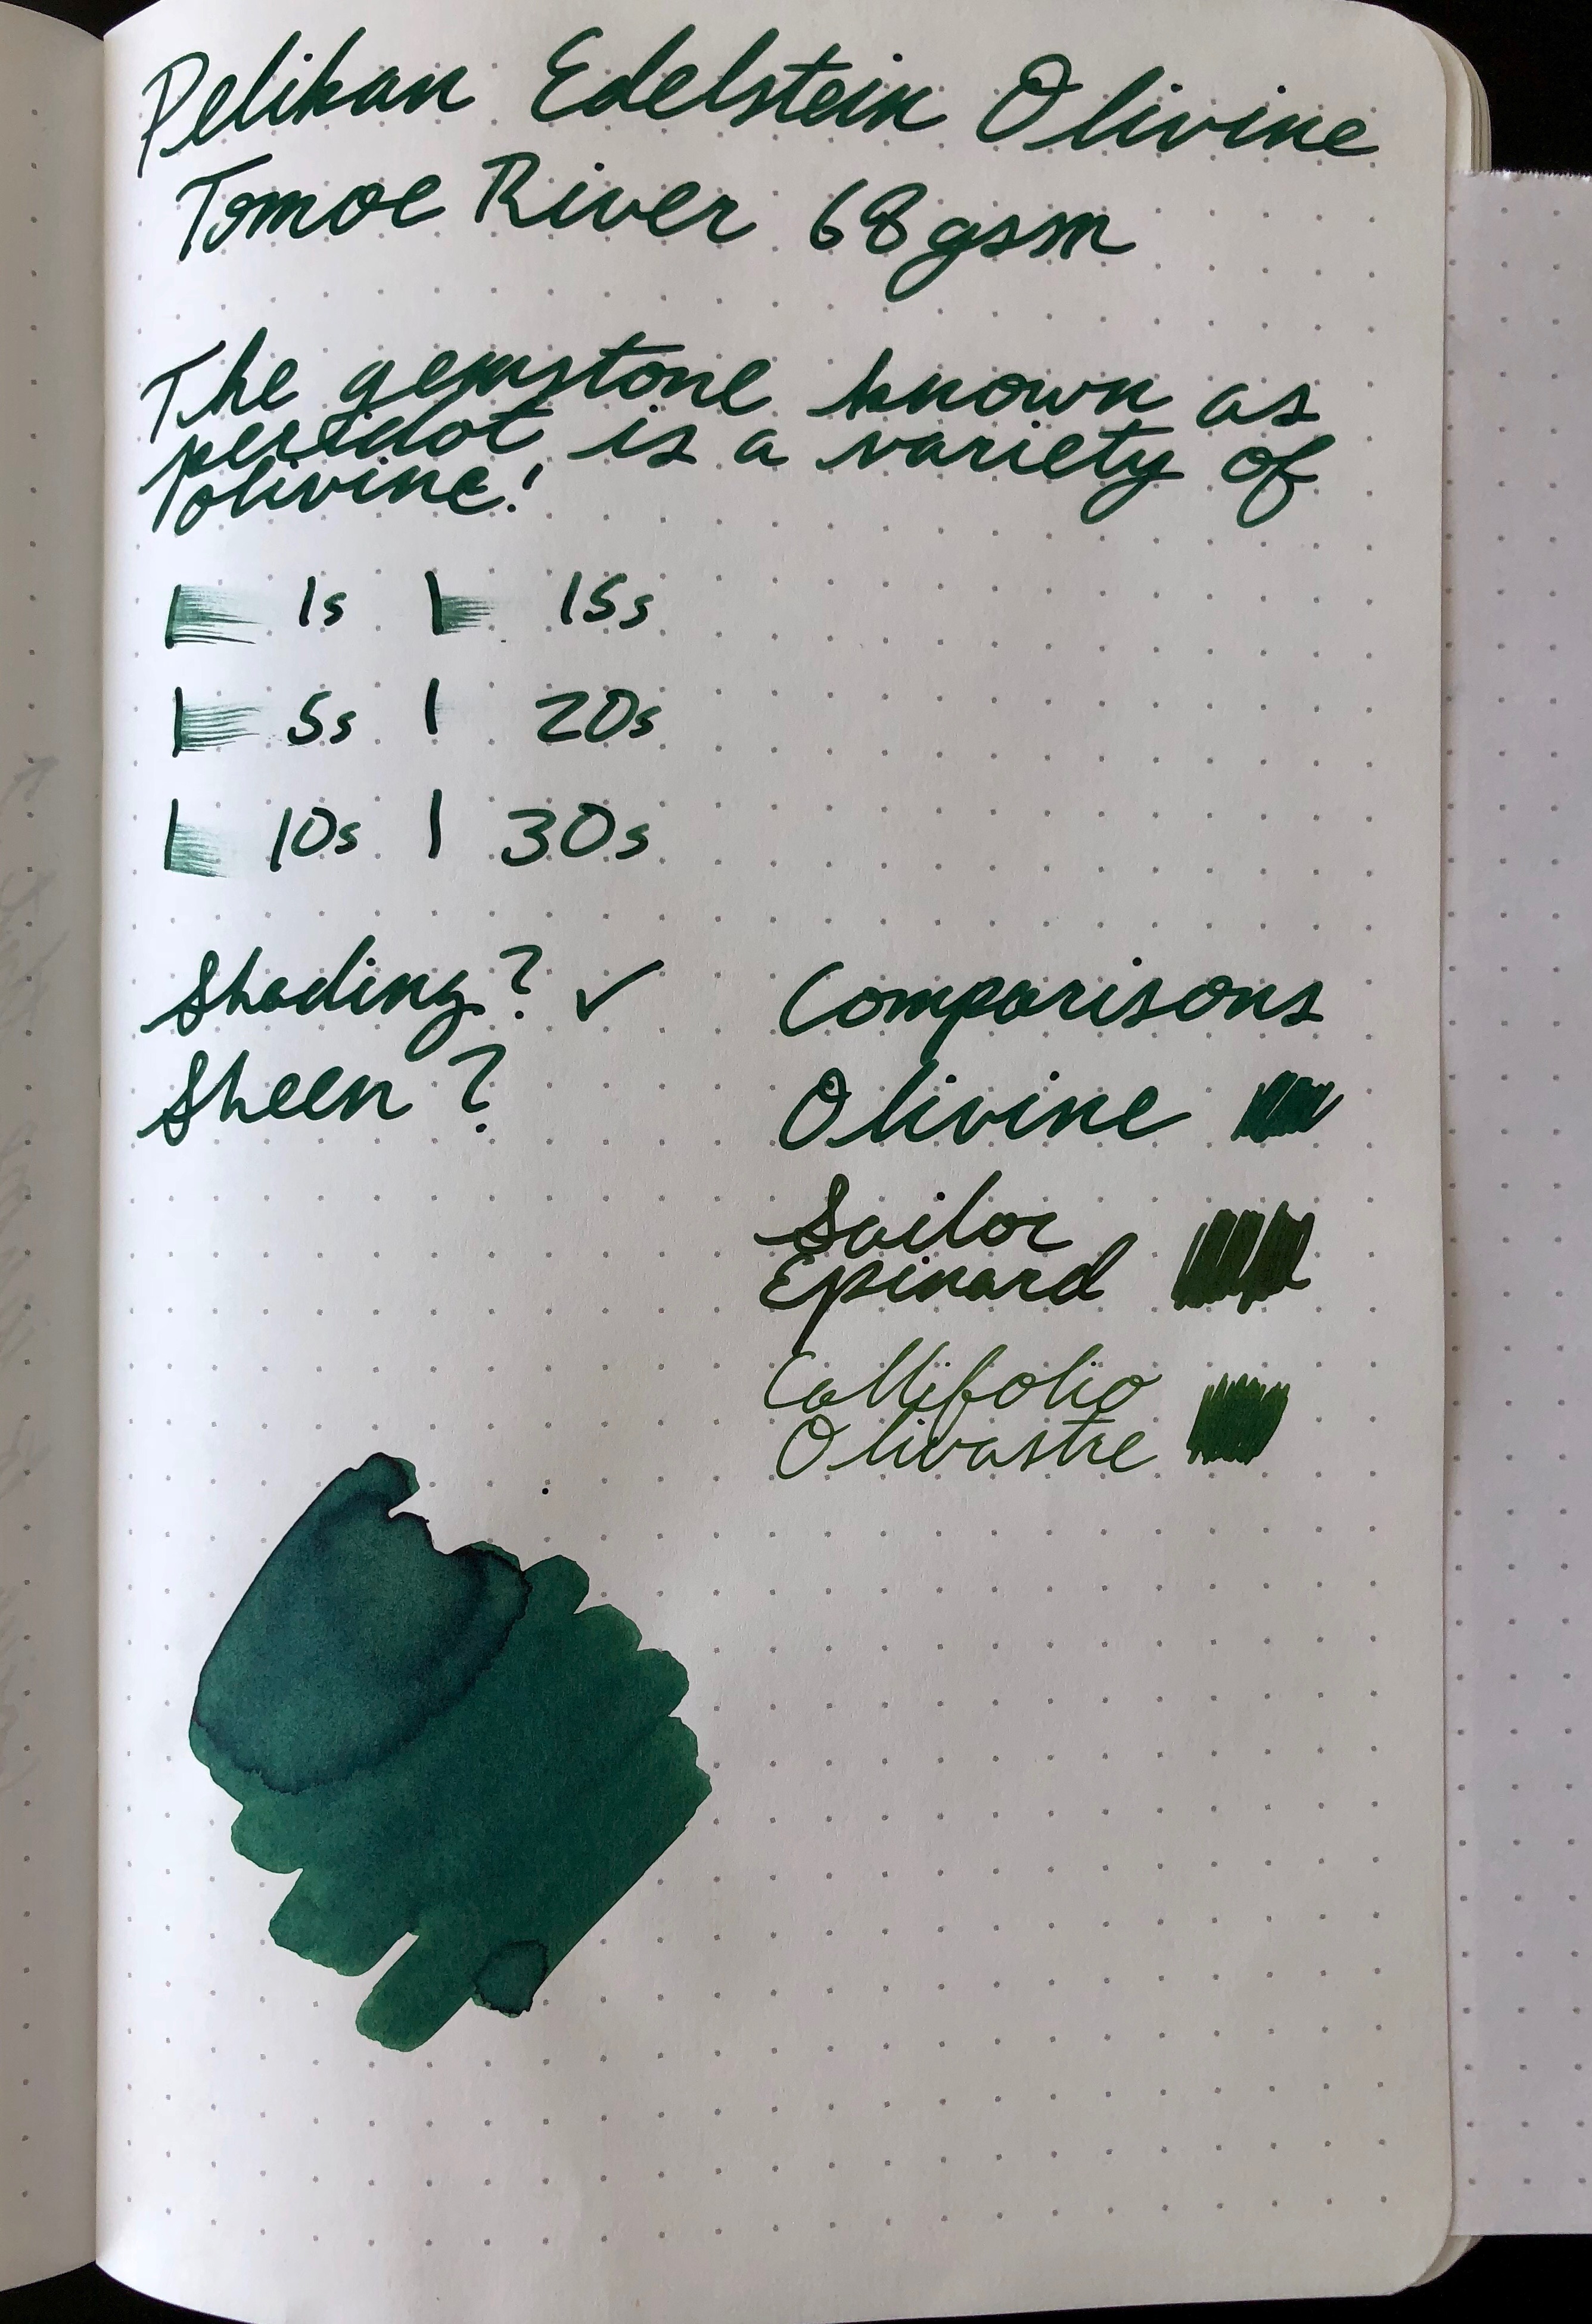 Pelikan Edelstein Olivine
Tomoe River 68gsm
The gemstone known as
peridot is a variety of
olivine!
1s 15s
5s 20s
10s 30s
Shading? ✓
Sheen?
Comparisons
Olivine
Sailor
Epinard
Callifolio
Olivastre